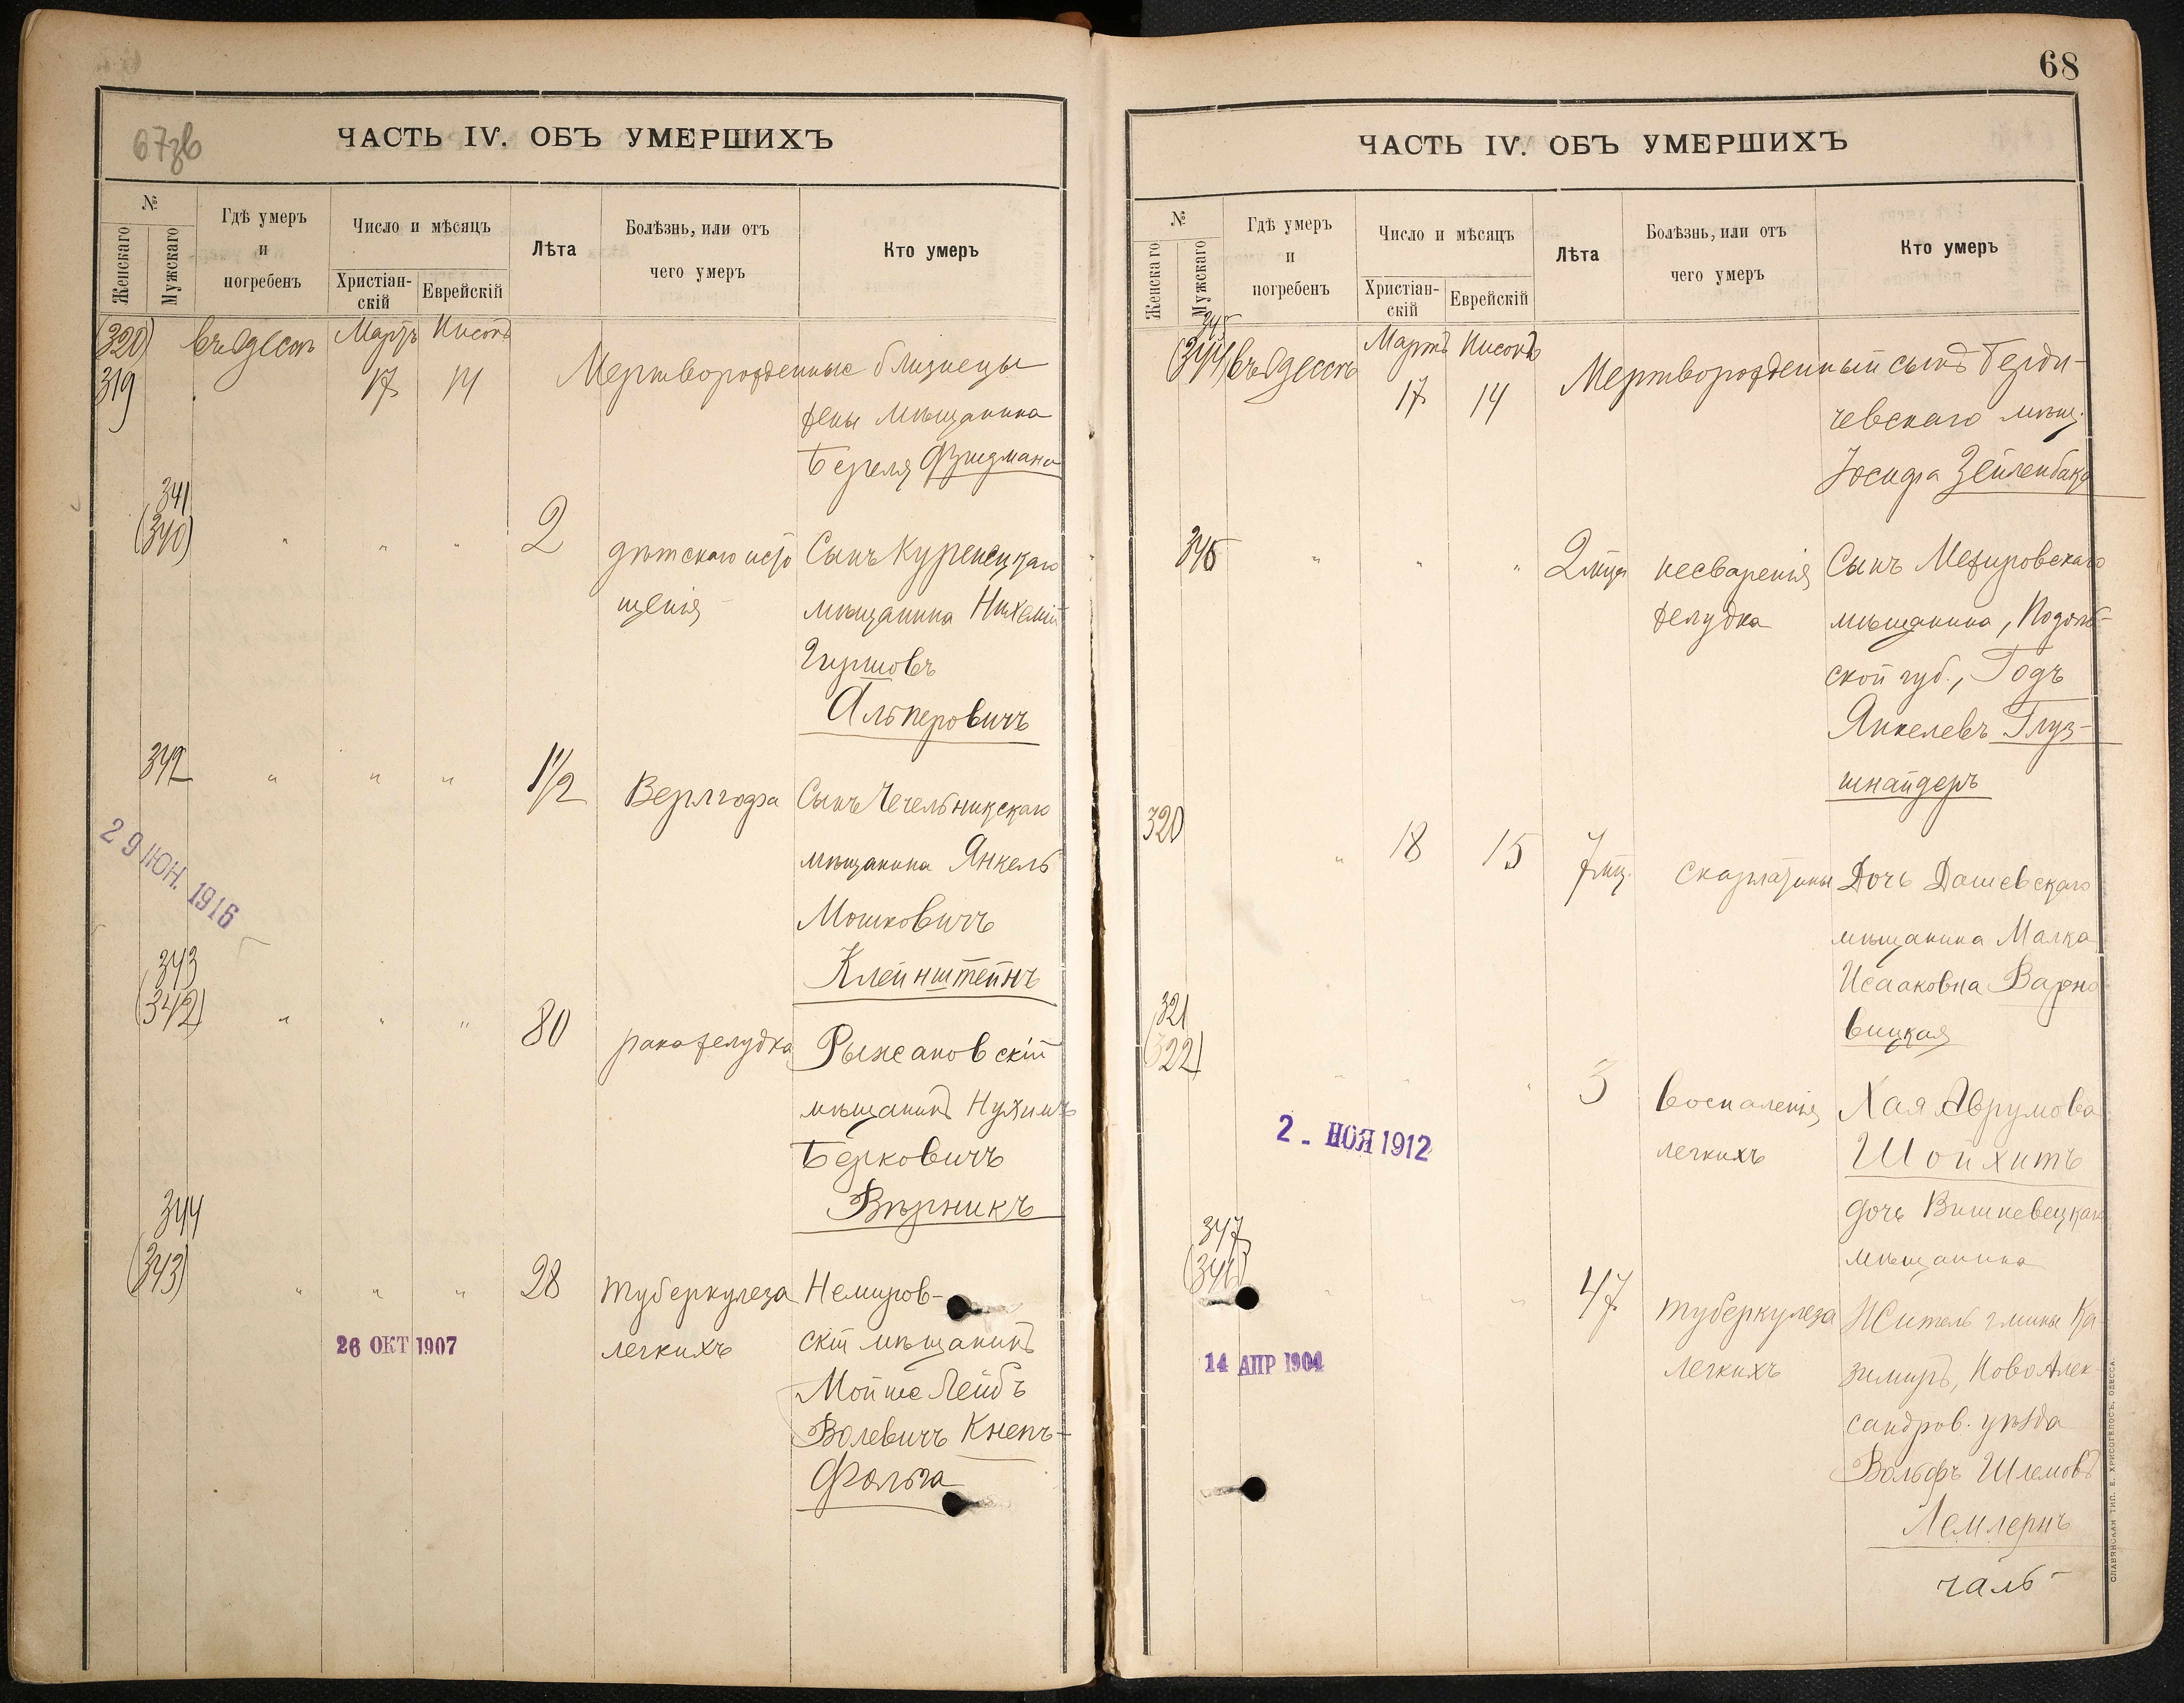 67зв
ЧАСТЬ IV. ОБЪ УМЕРШИХЪ
№
Женскаго
Мужскаго
Гдѣ умеръ
и
погребенъ
Число и мѣсяцъ
Христіан-
скій
Еврейскій
Лѣта
Болѣзнь, или отъ
чего умеръ
Кто умеръ
(320)
319
въ Одессѣ
Мартъ
17
Нисонъ
14
Мертворожденные близнецы
жены мѣщанина
Береля Фридмана
341
(340)
" " "
2
дѣтскаго исто
щенія
Сынъ Куренецкаго
мѣщанина
Гиршовъ
Альперовичъ
342
" " "
1 1/2
Сынъ Чечельникскаго
мѣщанина Янкель
Мошковичъ
Клейнштейнъ
29 ІЮН. 1916
343
(342)
" " "
80
рака желудка
Рыжановскій
мѣщанинъ Нухимъ
Берковичъ
Вѣрникъ
344
(343)
" " "
28
туберкулеза
легкихъ
Немиров-
скій мѣщанинъ
Мойше Лейбъ
Волевичъ Кнепъ-
Фольга
26 ОКТ 1907
68
ЧАСТЬ IV. ОБЪ УМЕРШИХЪ
№
Женскаго
Мужскаго
Гдѣ умеръ
и
погребенъ
Число и мѣсяцъ
Христіан-
скій
Еврейскій
Лѣта
Болѣзнь, или отъ
чего умеръ
Кто умеръ
345
(344)
въ Одессѣ
Мартъ
17
Нисонъ
14
Мертворожденный сынъ Берди-
чевскаго мѣщ.
Іосифа Зейленбака
346
" " "
2 мца
несваренія
желудка
Сынъ Межировскаго
мѣщанина, Подоль-
ской губ., Годъ
Янкелевъ Глуз-
шнайдеръ
320
"
18
15
7 мц.
скарлатины
Дочь Дашевскаго
мѣщанина Малка
Исааковна Варно
вицкая
321
(322)
" " "
3
воспаленія
легкихъ
Хая Аврумова
Шойхитъ
дочь Вишневецкаго
мѣщанина
2 - НОЯ 1912
347
(346)
" " "
47
туберкулеза
легкихъ
Житель гмины Ка-
зимиръ, Ново Алек-
сандров. уѣзда
Вольфъ Шлемовъ
Лемлеръ
14 АПР 1904
чаль
СЛАВЯНСКАЯ ТИП. Е. ХРИСОГЕЛОСЪ, ОДЕССА.